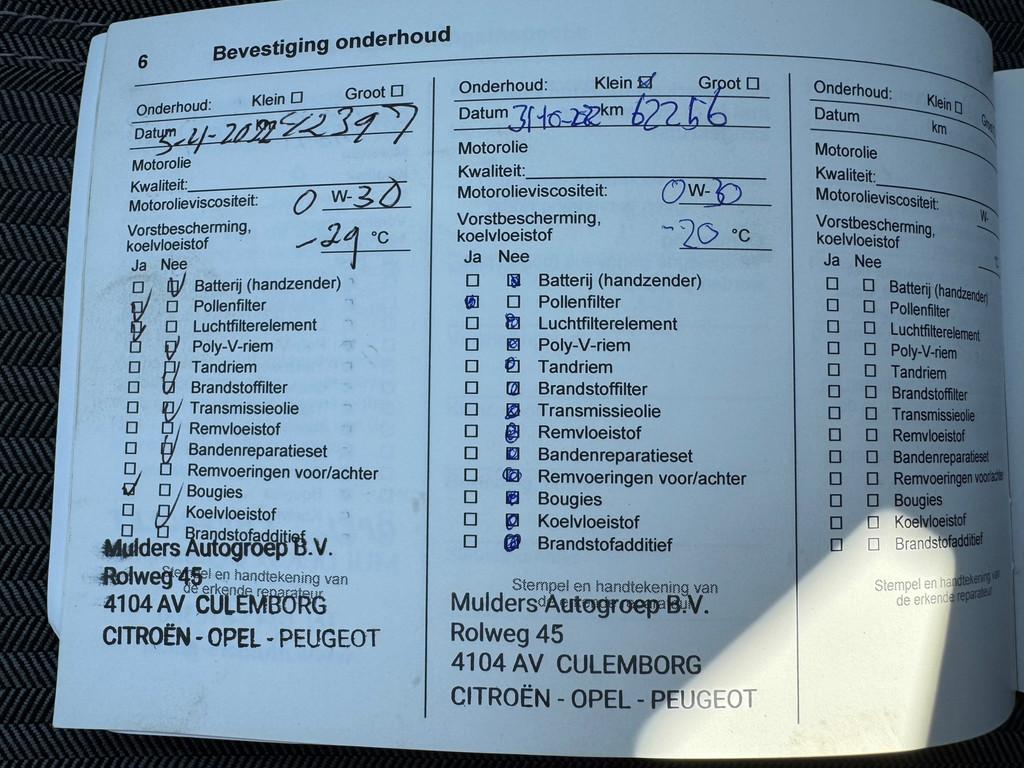 6 Bevestiging onderhoud
Onderhoud: Klein ☐ Groot ☐
Datum 42397
Motorolie
Kwaliteit:
Motorolieviscositeit: 0 W-30
Vorstbescherming,
koelvloeistof -29 °C
Ja Nee
Batterij (handzender)
Pollenfilter
Luchtfilterelement
Poly-V-riem
Tandriem
Brandstoffilter
Transmissieolie
Remvloeistof
Bandenreparatieset
Remvoeringen voor/achter
Bougies
Koelvloeistof
Brandstofadditief
Stempel en handtekening van
de erkende reparateur
Mulders Autogroep B.V.
Rolweg 45
4104 AV CULEMBORG
CITROËN - OPEL - PEUGEOT
Onderhoud: Klein ☒ Groot ☐
Datum km 62256
Motorolie
Kwaliteit:
Motorolieviscositeit: 0 W-30
Vorstbescherming,
koelvloeistof -20 °C
Ja Nee
Batterij (handzender)
Pollenfilter
Luchtfilterelement
Poly-V-riem
Tandriem
Brandstoffilter
Transmissieolie
Remvloeistof
Bandenreparatieset
Remvoeringen voor/achter
Bougies
Koelvloeistof
Brandstofadditief
Stempel en handtekening van
de erkende reparateur
Mulders Autogroep B.V.
Rolweg 45
4104 AV CULEMBORG
CITROËN - OPEL - PEUGEOT
Onderhoud: Klein ☐ Groot
Datum km
Motorolie
Kwaliteit:
Motorolieviscositeit: W-
Vorstbescherming,
koelvloeistof
Ja Nee
Batterij (handzender)
Pollenfilter
Luchtfilterelement
Poly-V-riem
Tandriem
Brandstoffilter
Transmissieolie
Remvloeistof
Bandenreparatieset
Remvoeringen voor/achter
Bougies
Koelvloeistof
Brandstofadditief
Stempel en handtekening van
de erkende reparateur